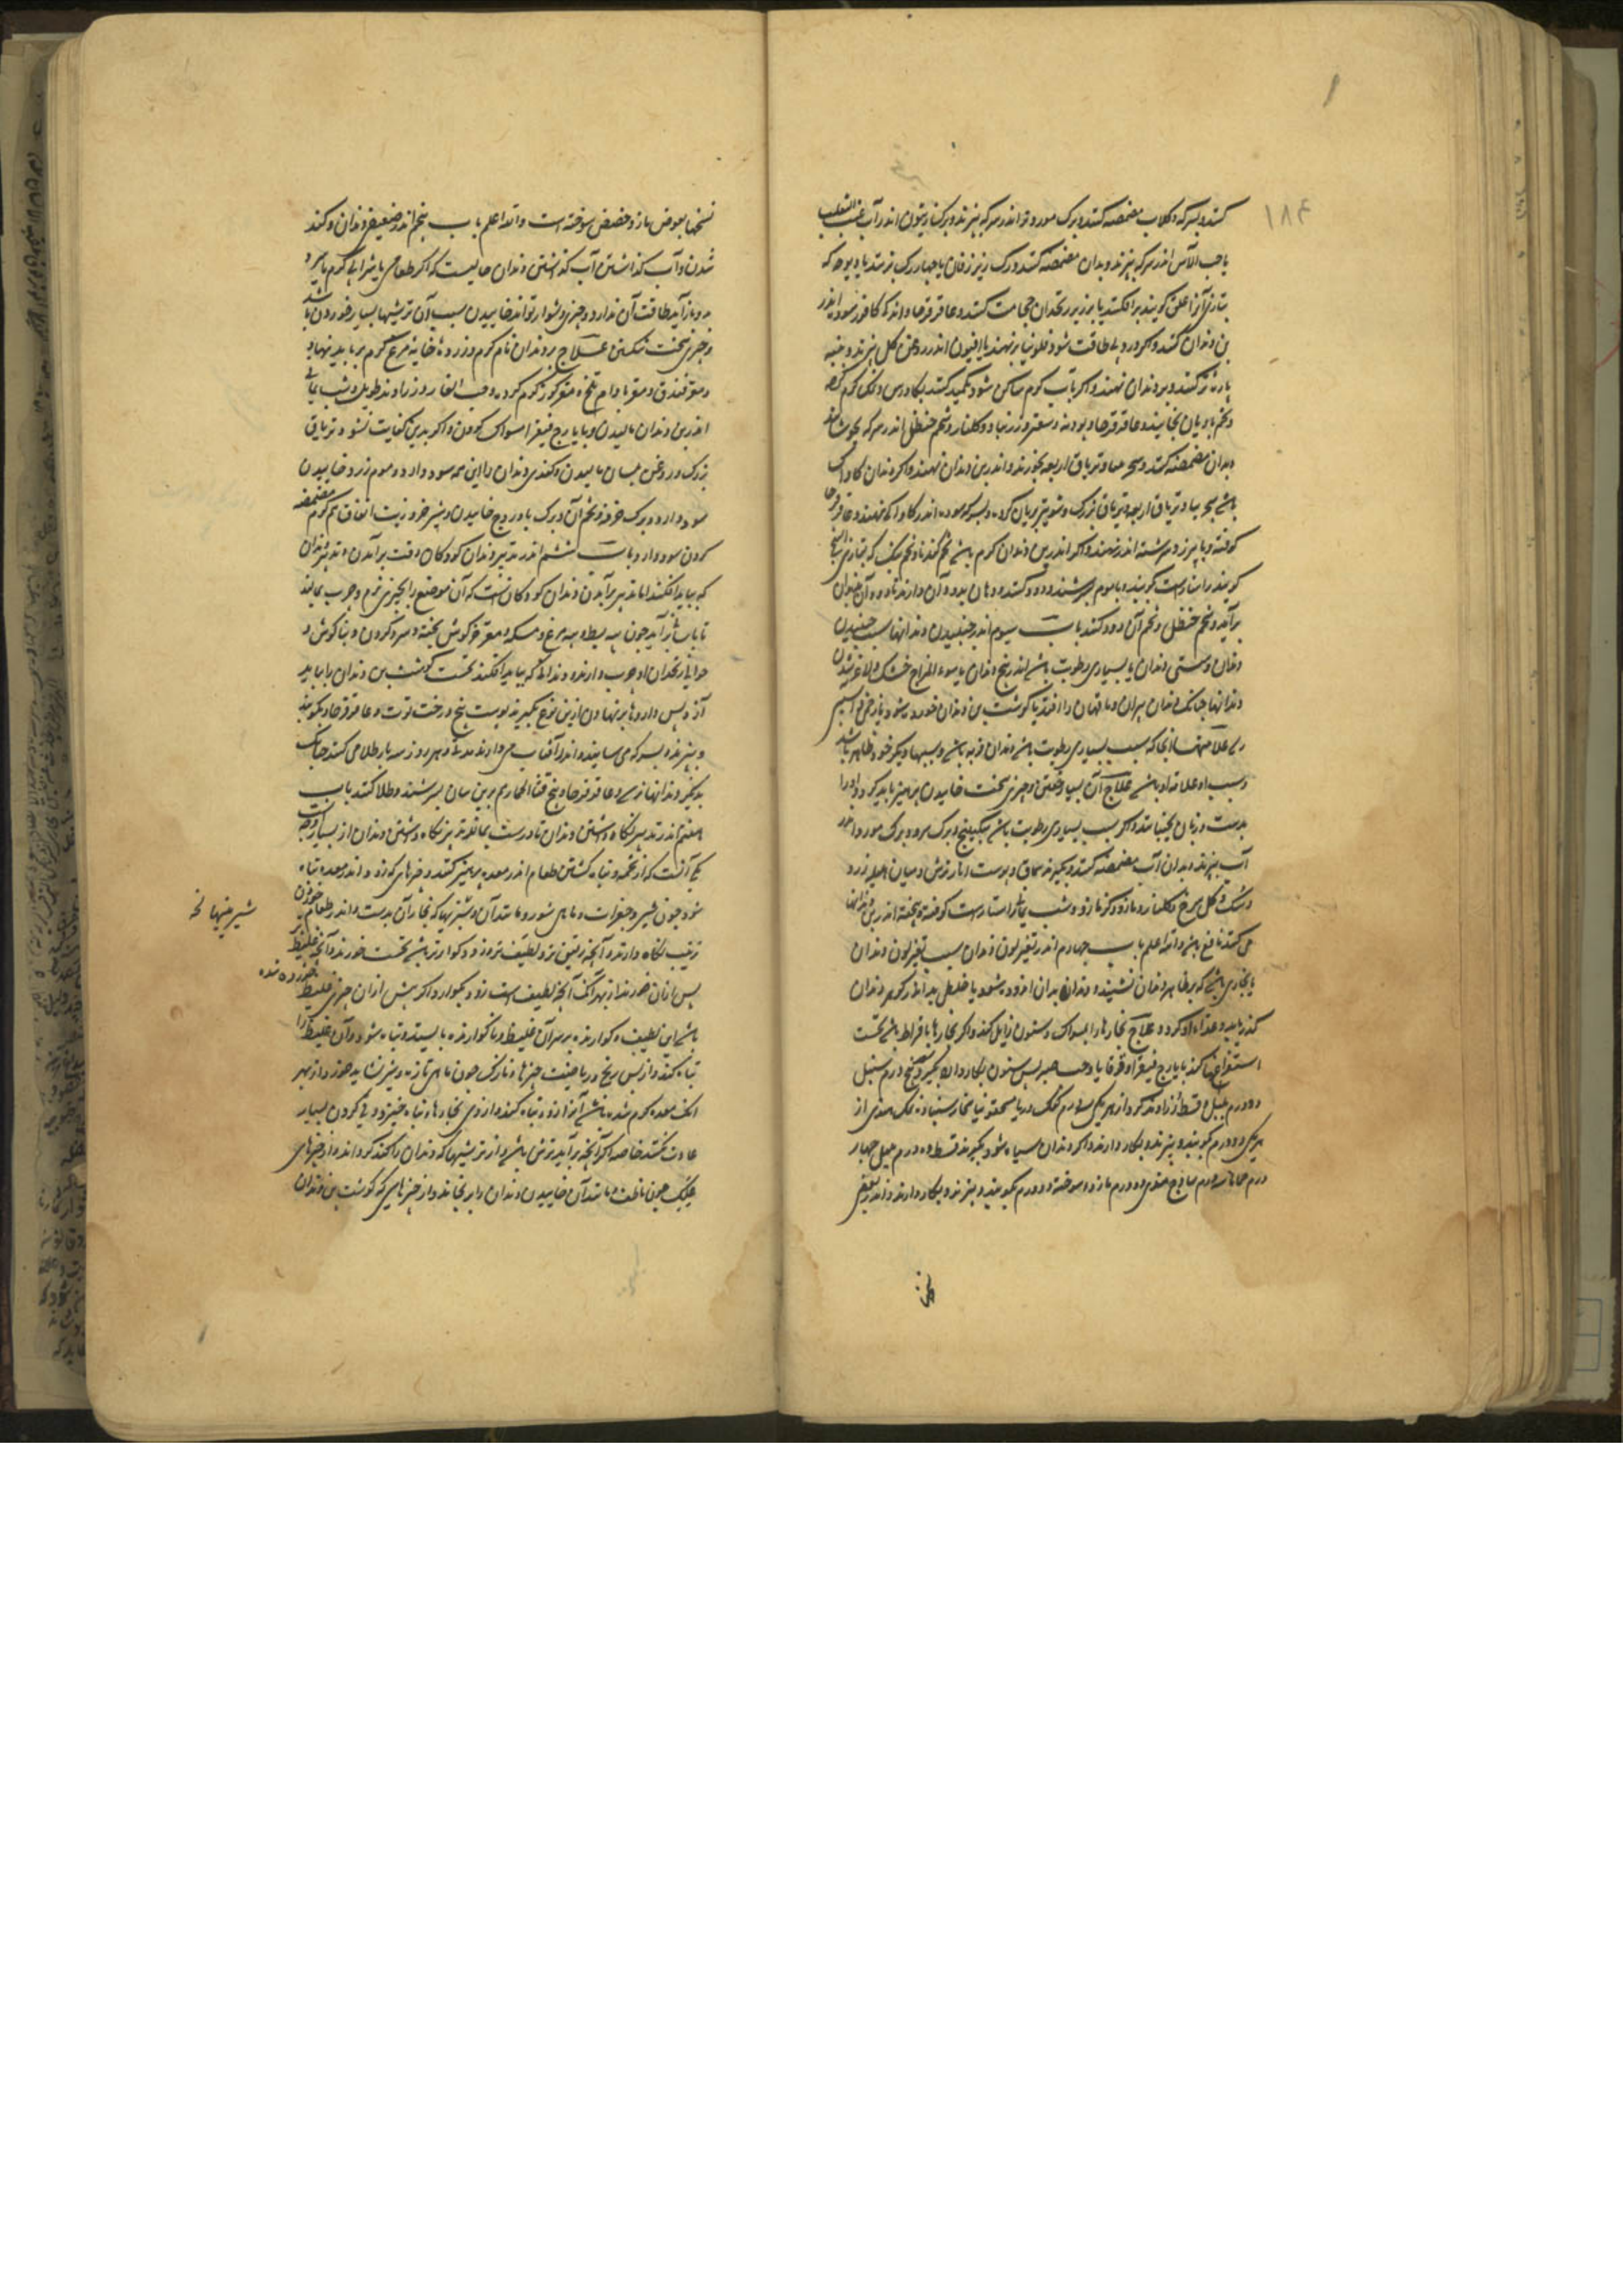 ۱۸۴
کنند و بسرکه و کلاب مضمضه کنند و برک مورد تر اندر سرکه بپزند و برک زیتون اندر آب عنب الثعلب
یا حب الآس اندر سرکه بپزند و بدان مضمضه کنند و رک زیر زفان یا چهار رک بزنند یا دیوجه که
بتازی آنرا علق کویند برافکنند یا بر زیر زنخدان حجامت کنند و عاقرقرحا و اندکی کافور سوده اندر
بن دندان کنند و اکر درد بی طاقت شود فلونیا برنهند یا افیون اندر روغن کل بپزند و پنبه
پاره تر کنند و بر دندان نهند و اکر بآب کرم ساکن شود تکمید کنند بکاورس و نمک کرم کرده
و تخم بادیان بخایند و عاقرقرحا و پودنه و سعتر و زرنباد و کلنار و شحم حنظل اندر سرکه بجوشانند
بدان مضمضه کنند و تریاق اربعه بخورند و اندر بن دندان نهند و اکر دندان کاواک
باشد و تریاق اربعه و تریاق بزرک و شونیز بریان کرده و بسرکه سوده اندر کاواکی نهند و عاقرقرحا
کوفته و با بیرزد سرشته اندر نهند و اکر اندر بن دندان کرم باشد تخم کندنا و تخم بنک که بتازی
کویند راستاراست کوبیده با موم بسرشند و دود کنند و دهان بدود آن دارند تا دود آن بدندان
برآید و تخم حنظل و تخم آن دود کنند باب سیوم اندر جنبیدن دندانها سبب جنبیدن
دندان و سستی دندان یا بسیاری رطوبت باشد اندر بیخ دندان یا سوء المزاج خشک و لاغر شدن
دندانها چنانکه دندان پیران و ناقهان را افتد یا کوشت بن دندان خورده شود یا زخمی و آسیبی
رسد علامتها آنجا که سبب بسیاری رطوبت باشد دندان فربه باشد و سببهای دیکر خود ظاهر باشد
و سبب او علامت او باشد علاج آن بسیار گفتن و چیزی سخت خاییدن پرهیز باید کرد و او را
بدست و زبان نجنبانند و اکر سبب بسیاری رطوبت باشد سکبینج و برک سرو و برک مورد اندر
آب بپزند و بدان آب مضمضه کنند و بکیرند سماق و پوست انار ترش و میان هلیله زرد
و سک و کل سرخ و کلنار و مازو و کزمازو و شب یمانی راستاراست کوفته و بیخته اندر بن دندانها
می کنند نافع باشد والله اعلم باب چهارم اندر تغیر لون دندان سبب تغیر لون دندان
یا بخاری باشد که بر ظاهر دندان نشیند و دندان بدان اندوده شود یا خلطی بد اندر کوهر دندان
کذر یابد و غذاء او کردد علاج بخارها را بمسواک و سنون زایل کنند و اکر بخارها با فراط باشد نخست
استفراغها کنند بایارج فیقرا و قوقایا و حب صبر پس سنون بکار دارند بکیرند پنج درم سنبل
دو درم پلپل و قسط و زراوند کرد از هر یکی سه درم نمک دریا سوخته یا نیخار سنباده نمک هندی از
هر یکی دو درم کوبند و بپزند و بکار دارند و اکر دندان سیاه شود بکیرند قسط ده درم پلپل چهار
درم ساذج هندی ده درم مازو سوخته دو درم بکوبند و بپزند و بکار دارند و اندر بعضی
نسخها
نسخها بعوض مازو حضض سوخته است والله اعلم باب پنجم اندر ضعیفی دندان و کند
شدن و آب کذاشتن آب کذاشتن دندان حالیست که اکر طعامی یا شرابی کرم یا سرد
بدو باز آید طاقت آن ندارد و چیزی دشوار تواند خاییدن سبب آن ترشیها بسیار خوردن باشد
و چیزی سخت شکستن علاج بر دندان نام کرم و زرده خایه مرغ کرم برباید نهاد
و مغز فندق و مغز بادام تلخ و مغز کوز کرم کرده و حب الغار و زراوند طویل و شب یمانی
اندر بن دندان مالیدن و بایارج فیقرا مسواک کردن و اکر بدین کفایت نشود تریاق
بزرک و روغن بلسان مالیدن و کندی دندان را این همه سود دارد و موم زرد خاییدن
سود دارد و برک خرفه و تخم آن و برک بادروج خاییدن و شیر خر و زیت انفاق نیم کرم مضمضه
کردن سود دارد باب ششم اندر تدبیر دندان کودکان وقت برآمدن و تدبیر دندان
که بباید افکند اما تدبیر برآمدن دندان کودکان آنست که آن موضع را بچیزی نرم و چرب بمالند
تا باسانی برآید چون پیه بط و پیه مرغ و مسکه و مغز خرکوش پخته و سر و کردن و بناکوش و
حوالی زنخدان او چرب دارند و دندانی که بباید افکند نخست کوشت بن دندان را بباید
آزد پس داروها برنهادن ازین نوع بکیرند پوست بیخ درخت توت و عاقرقرحا و بکوبند
و بپزند و بسرکه می سایند و اندر آفتاب می دارند مدتی و هر روز سه بار طلا می کنند چنانک
بدیکر دندانها نرسد و عاقرقرحا و بیخ قثاء الحمار هم برین سان بسرشند و طلا کنند باب
هفتم اندر تدبیر نکاه داشتن دندان تا درست بماند تدبیر نکاه داشتن دندان از بسیار وجه
یکی آنست که از تخمه و تباه کشتن طعام اندر معده پرهیز کنند و چیزهای که زود اندر معده تباه
شود چون شیر و جغرات و ماهی شور و مانند آن و شیرینیها که بخار آن بدست و اندر طعام خوردن
ترتیب نکاه دارند و آنچه رقیق تر و لطیف تر و زود کوارتر باشد نخست خورند و آنچه غلیظ
پس از آن خورند از بهر آنک آنچه لطیف است زود بکوارد و اکر پیش ازان چیزی غلیظ خورده شده
باشد این لطیف کوارنده بر سر آن غلیظ و ناکوارنده بایستد و تباه شود و آن غلیظ را
تباه کند و از پس رنج و ریاضت چیزهاء نازک چون ماهی تازه و شیر نشاید خورد از بهر
آنک معده کرم شده باشد آنرا زود تباه کند و از وی بخارهاء تباه خیزد و قی کردن بسیار
عادت نکنند خاصه اکر آنچه برآید ترش باشد و از ترشیها که دندان را کند کرداند و از چیزهای
علک چون ناطف و مانند آن خاییدن دندان را برنجاند و از چیزهایی که کوشت بن دندان
شیرینیها نخ